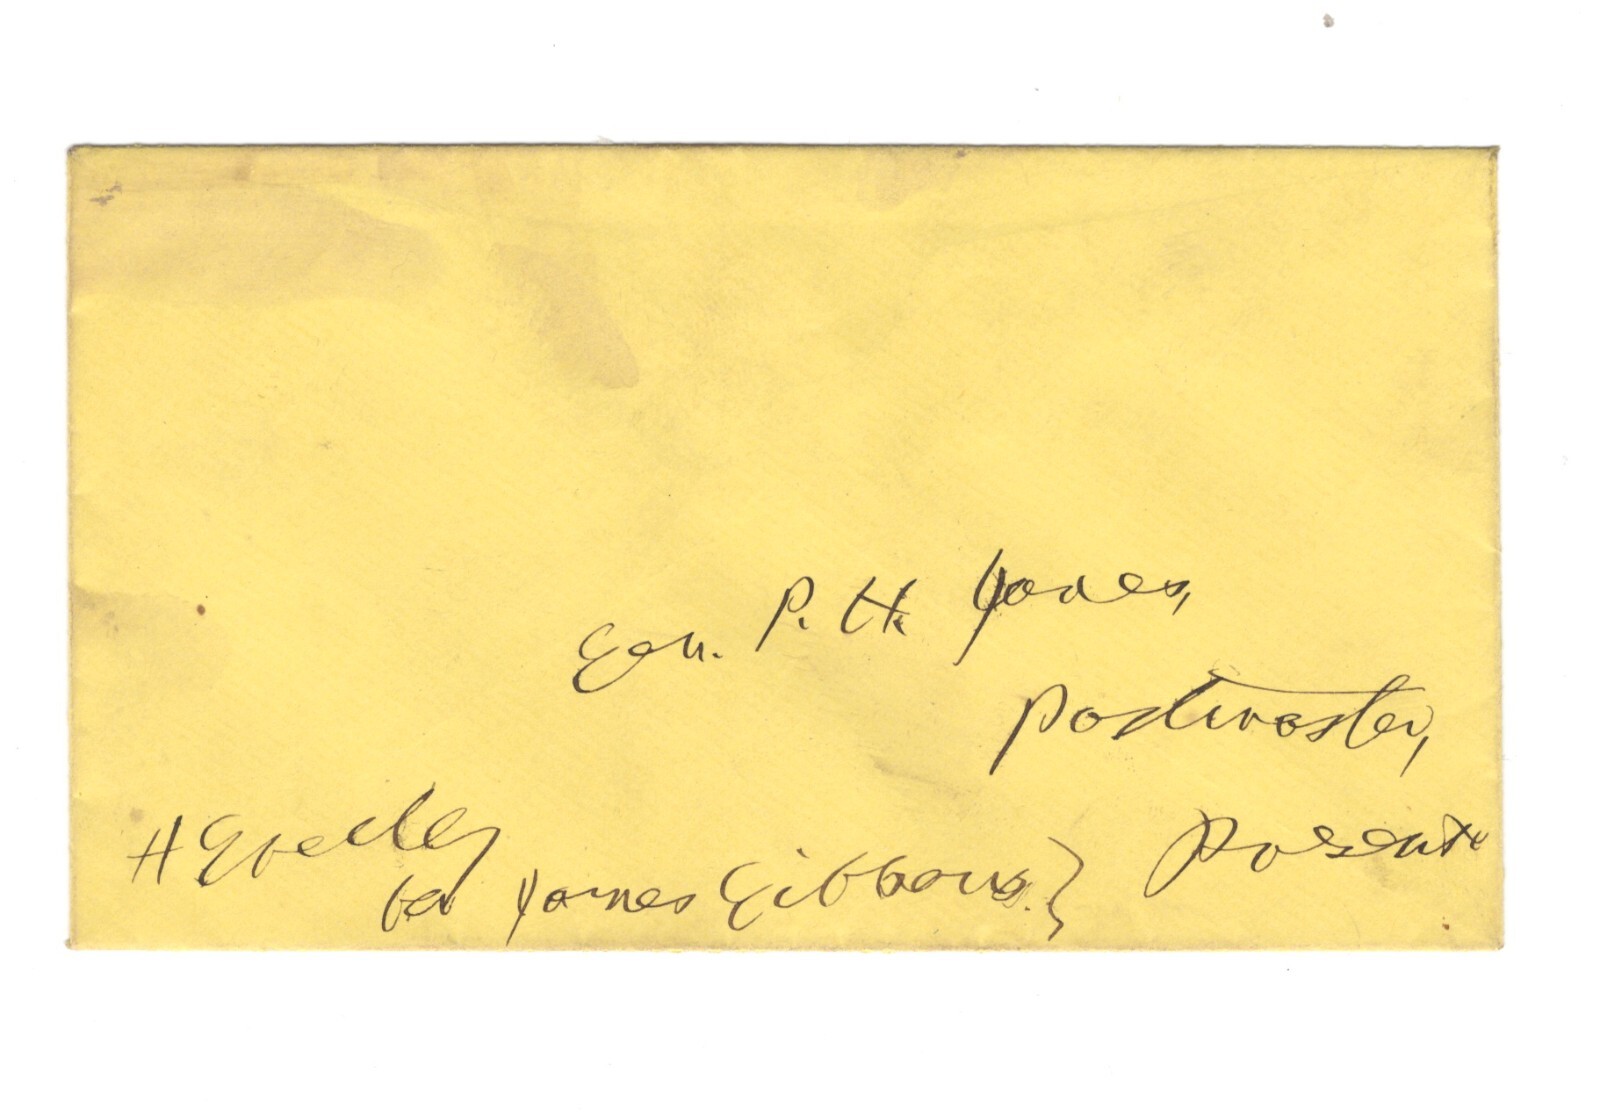 Gen. P. H. Jones,
Postmaster,
Present.
H Greeley
for James Gibbons.}